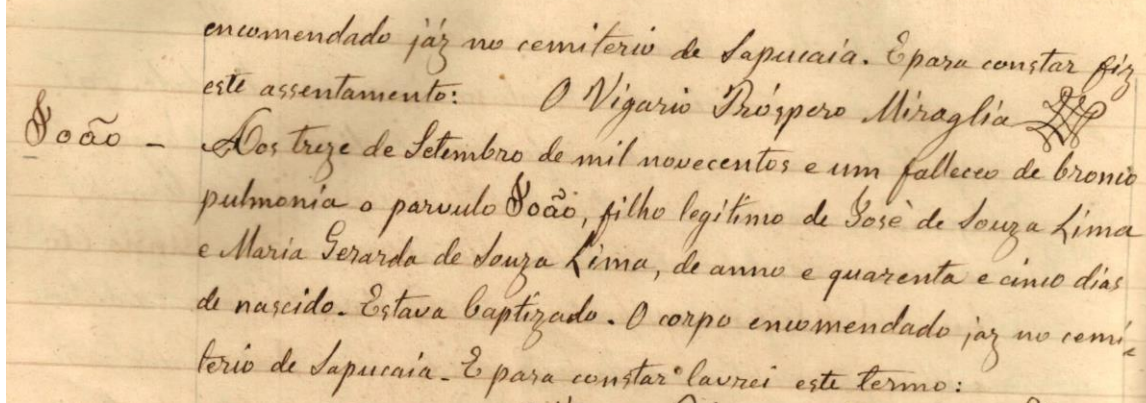 encomendado jáz no cemiterio de Sapucaia. E para constar fiz
este assentamento: O Vigario Próspero Miraglia
João - Aos treze de Setembro de mil novecentos e um falleceo de bronco
pulmonia o parvulo João, filho legítimo de José de Souza Lima
e Maria Gerarda de Souza Lima, de anno e quarenta e cinco dias
de nascido. Estava baptizado. O corpo encomendado jaz no cemi-
terio de Sapucaia. E para constar lavrei este termo: